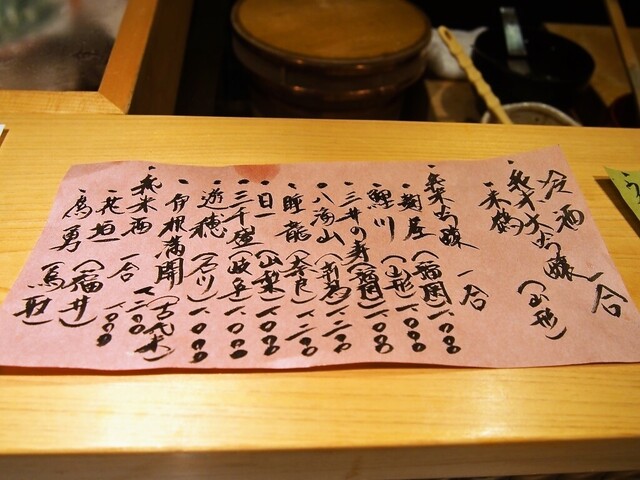 冷酒 一合
・純米大吟醸
米鶴 (山形)
・純米吟醸 一合
・麹屋 (福岡) 一、〇〇〇
・鯉川 (山形) 一、〇〇〇
・三井の寿 (福岡) 一、〇〇〇
・八海山 (新潟) 一、二〇〇
・睡龍 (奈良) 一、一〇〇
・日一 (山梨) 一、〇〇〇
・三千盛 (岐阜) 一、〇〇〇
・遊穂 (石川) 一、〇〇〇
・伊根満開 (古代米)
・純米酒 一合
・花垣 (福井) 一、〇〇〇
・鷹勇 (鳥取)